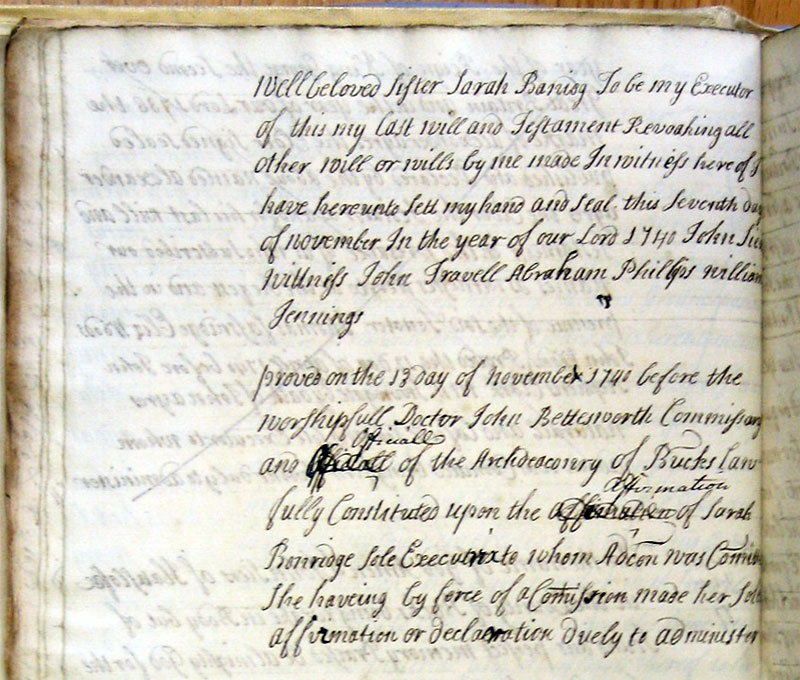 Well beloved Sister Sarah To be my Executor
of this my Last will and Testament Revoaking all
other will or wills by me made In witness here of I
have hereunto sett my hand and seal this seventh day
of november In the year of our Lord 1740 John
Wittness John Travell Abraham Phillips william
Jennings
proved on the 13 day of november 1740 before the
worshipfull Doctor John Bettesworth Commissary
and Officiall of the Archdeaconry of Bucks Law
fully Constituted upon the affirmation of Sarah
Bonridge sole Executrix to whom Adcon was
She haveing by force of a Comission made her
affirmation or declaration duely to administer